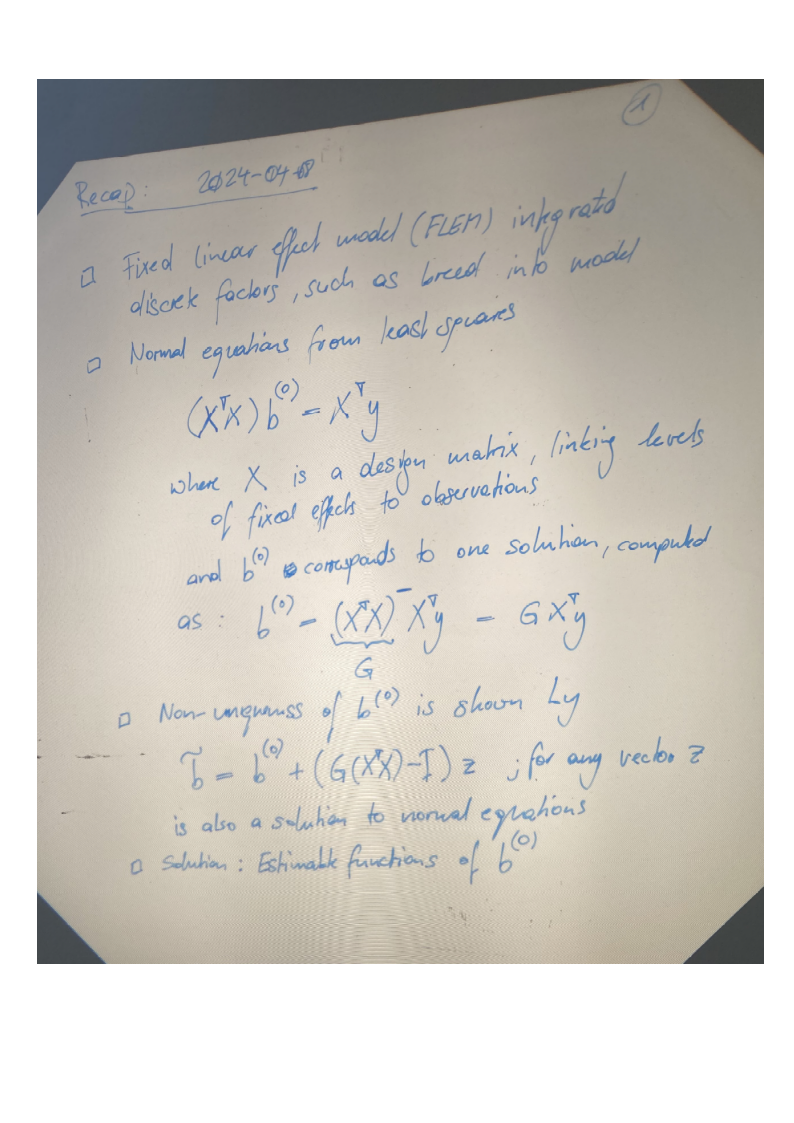 1
Recap: 2024-04-08
□ Fixed linear effect model (FLEM) integrated
discrete factors, such as breed into model
□ Normal equations from least squares
(XᵀX) b⁽⁰⁾ = Xᵀy
where X is a design matrix, linking levels
of fixed effects to observations
and b⁽⁰⁾ corresponds to one solution, computed
as: b⁽⁰⁾ = (XᵀX)⁻ Xᵀy = G Xᵀy
G
□ Non-uniqueness of b⁽⁰⁾ is shown by
b̃ = b⁽⁰⁾ + (G(XᵀX)-I) z ; for any vector z
is also a solution to normal equations
□ Solution: Estimable functions of b⁽⁰⁾